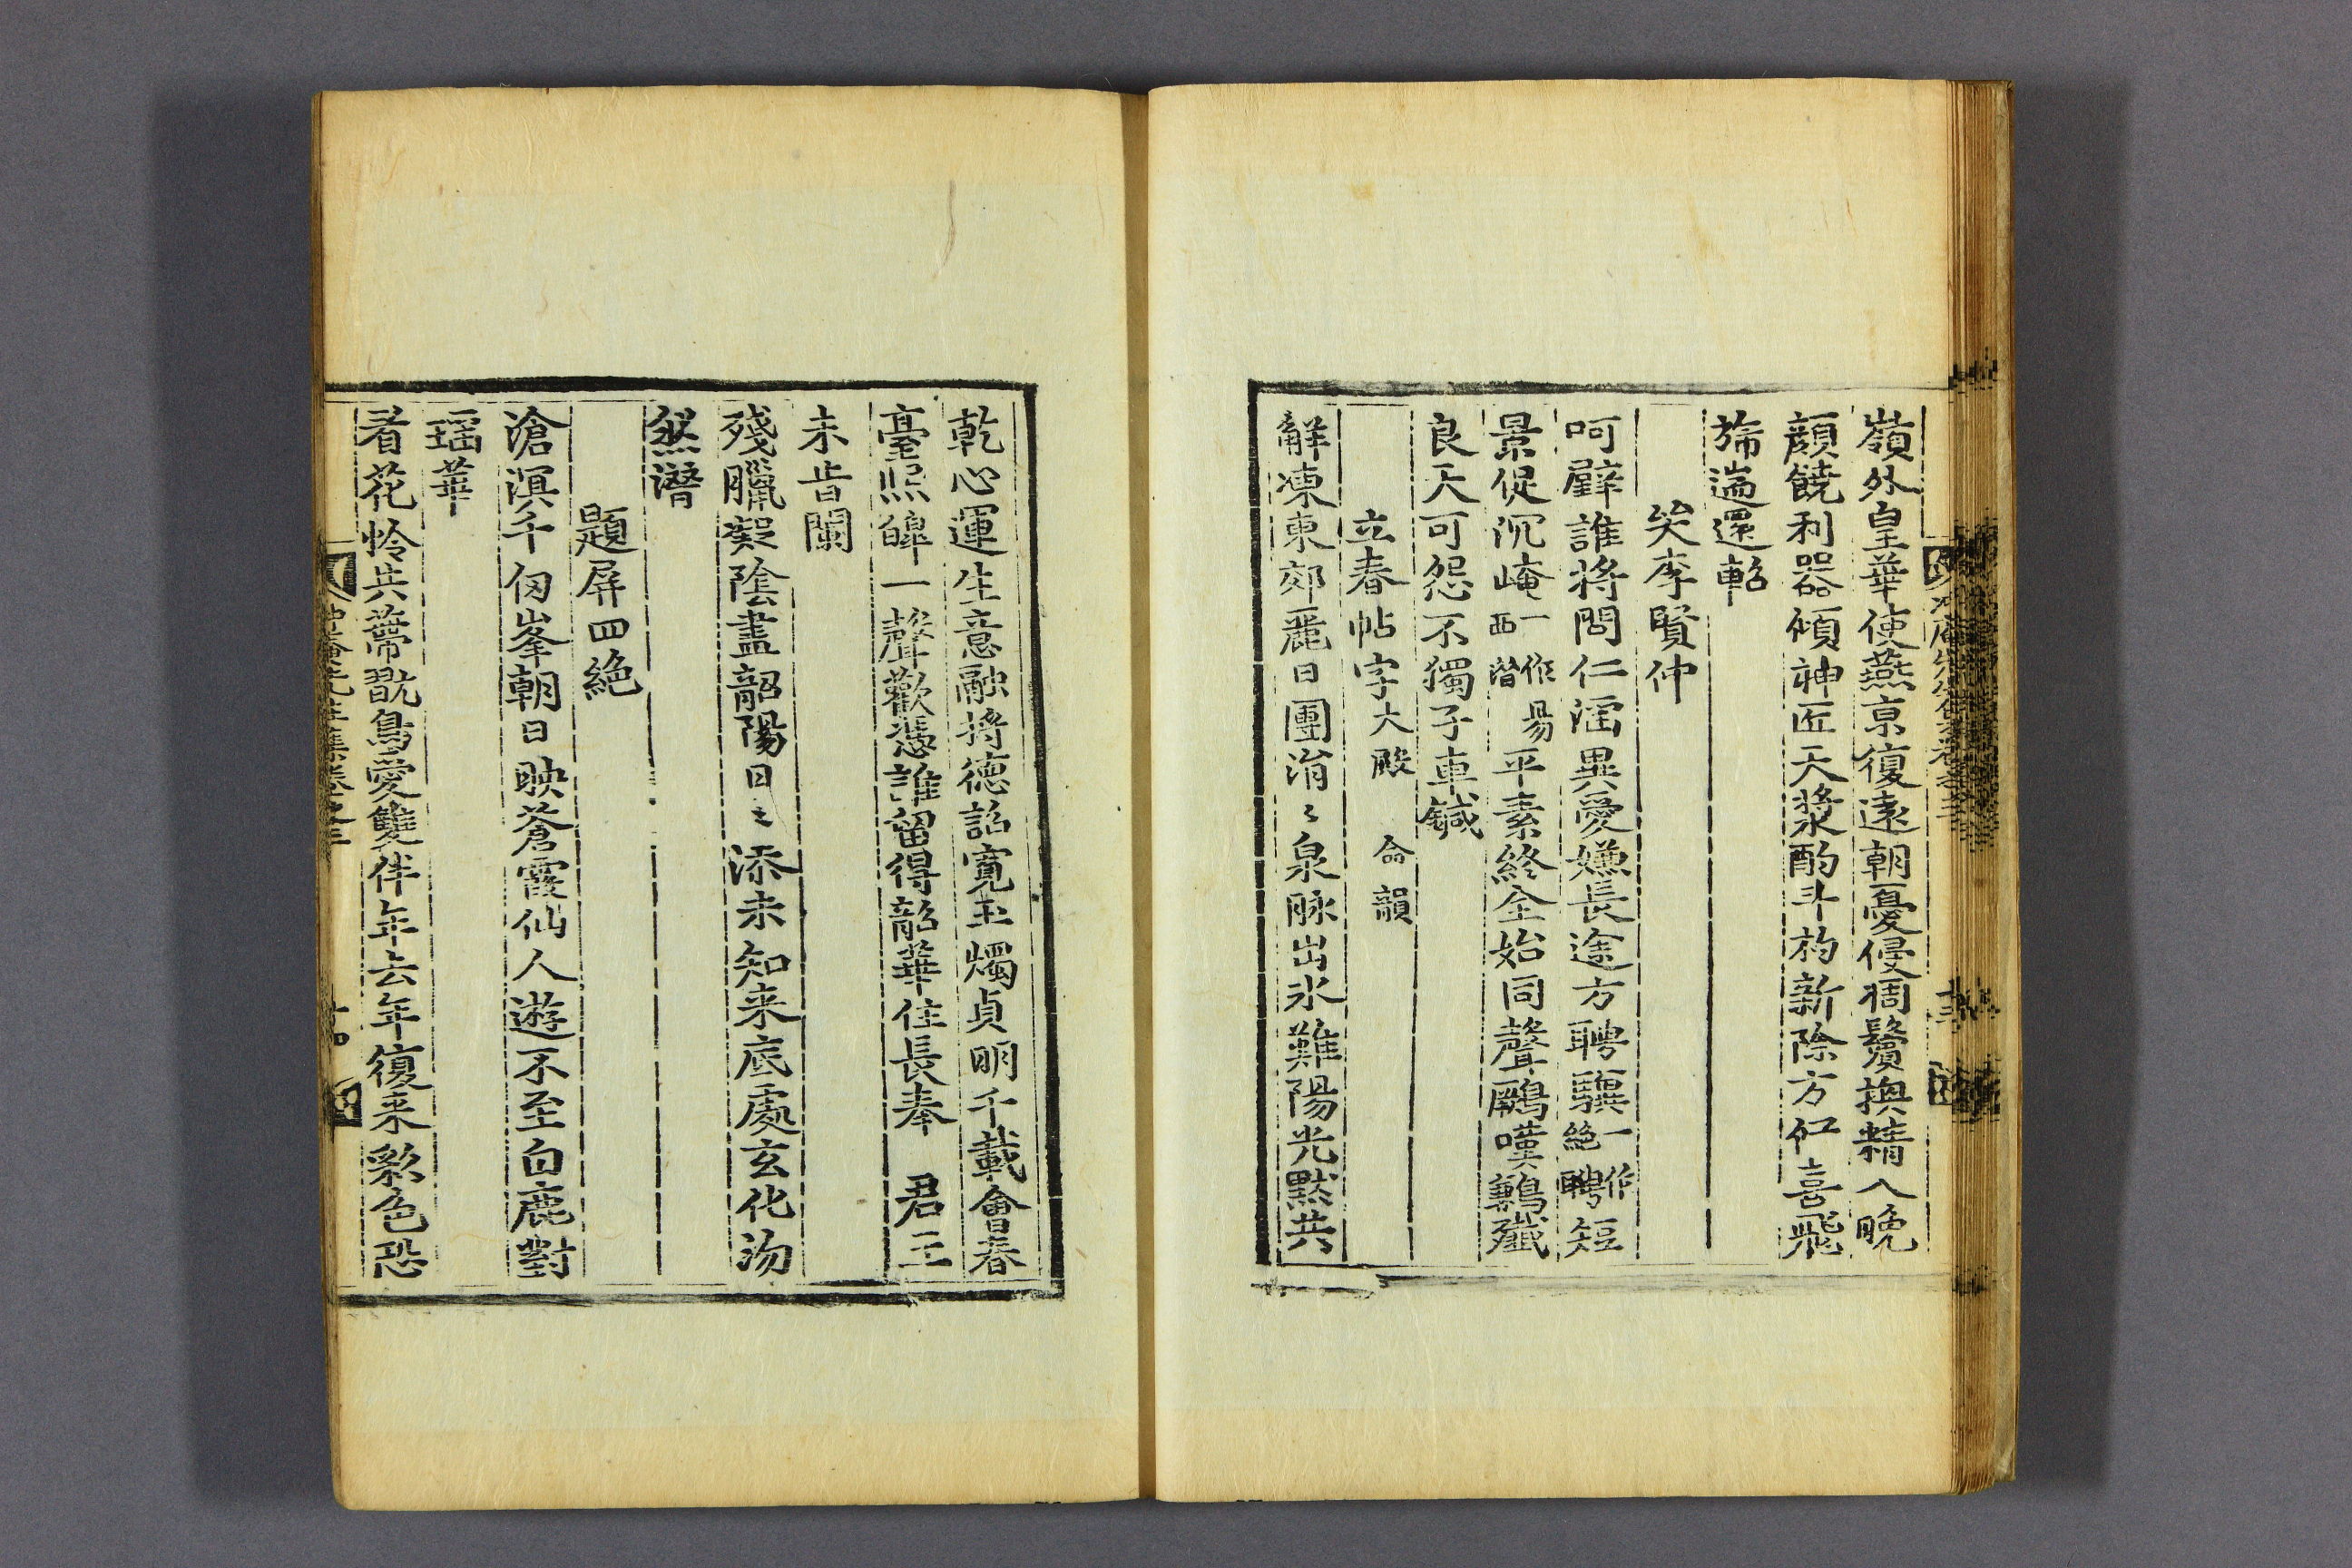 嶺外皇華使燕京復遠朝憂侵凋鬢換精入晚
顔饒利器傾神匠天漿酌斗杓新除方紅喜飛
旆遄還軺
哭李賢仲
呵壁誰將問仁淫異愛嫌長途方聘驥一作絶聘短
景促沉崦一作昜西潛平素終全始同聲鷴嘆鶼殲
良天可怨不獨子車鍼
立春帖字大殿命韻
解凍東郊麗日團涓〻泉脉出氷難陽光默共
乾心運生意融將德詔寛玉燭貞明千載會春
臺熙皥一聲歡憑誰留得韶華住長奉 君王
未旹闌
殘臘凝陰盡韶陽日〻添未知来底處玄化汤
然潛
題屏四絶
滄溟千仞峯朝日映蒼霞仙人遊不至白鹿對
瑶華
看花怜共蔕翫鳥愛雙伴年去年復来彩色恐
冲庵先生集卷之三
十四